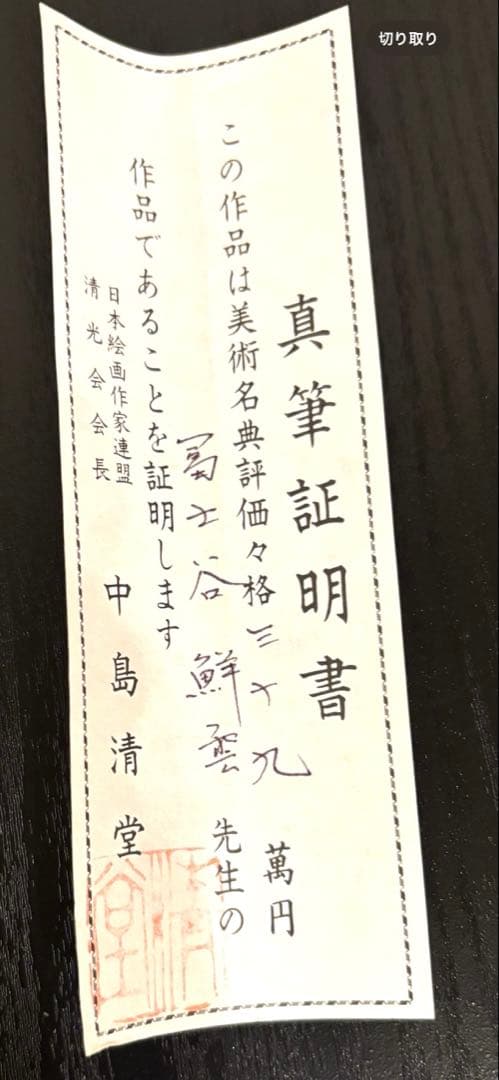 切り取り
真筆証明書
この作品は美術名典評価々格三十九萬円
冨士谷鮮雲先生の
作品であることを証明します
日本絵画作家連盟
清光会会長
中島清堂
清堂